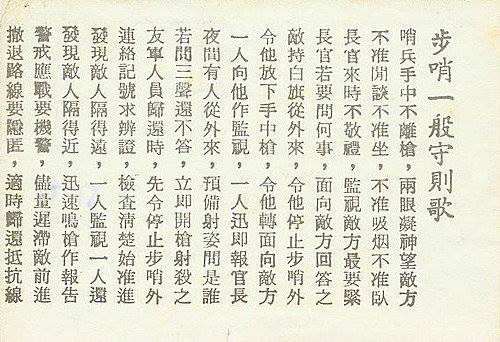 步哨一般守則歌
哨兵手中不離槍，兩眼凝神望敵方
不准閒談不准坐，不准吸烟不准臥
長官來時不敬禮，監視敵方最要緊
長官若要問何事，面向敵方回答之
敵持白旗從外來，令他停止步哨外
令他放下手中槍，令他轉面向敵方
一人向他作監視，一人迅即報官長
夜間有人從外來，預備射姿問是誰
若問三聲還不答，立即開槍射殺之
友軍人員歸還時，先令停止步哨外
連絡記號求辨證，檢查清楚始准進
發現敵人隔得遠，一人監視一人還
發現敵人隔得近，迅速鳴槍作報告
警戒應戰要機警，儘量遲滯敵前進
撤退路線要隱匿，適時歸還抵抗線